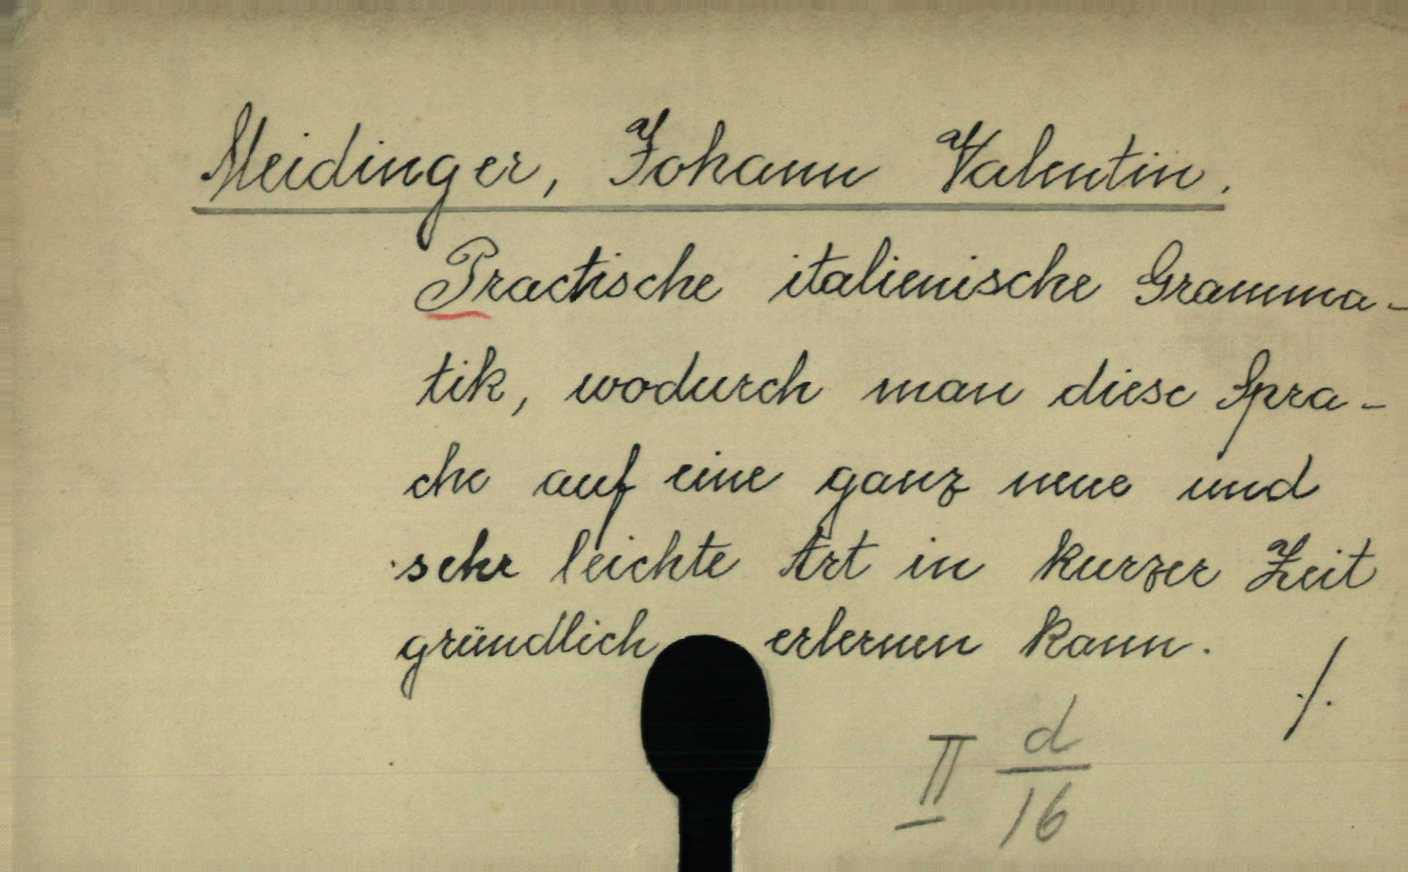 Meidinger, Johann Valentin.
Practische italienische Gramma-
tik, wodurch man diese Spra-
che auf eine ganz neue und
sehr leichte Art in kurzer Zeit
gründlich erlernen kann.
./.
II d/16